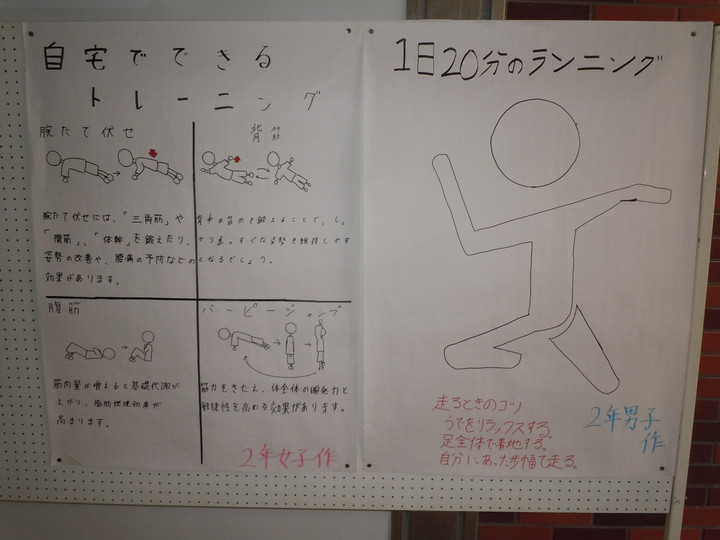 自宅でできる
トレーニング
腕たて伏せ
腕たて伏せには、「三角筋」や
「腹筋」、「体幹」を鍛えたり、
姿勢の改善や、腰痛の予防などの
効果があります。
背筋
背中の筋肉を鍛えることで、し
なるでしょう。
腹筋
筋肉量が増えると基礎代謝が
上がり、脂肪燃焼効果が
高まります。
バーピージャンプ
筋力をきたえ、体全体の瞬発力と
敏捷性を高める効果があります。
2年女子作
1日20分のランニング
走るときのコツ
うでをリラックスする。
足全体で着地する。
自分にあった歩幅で走る。
2年男子
作